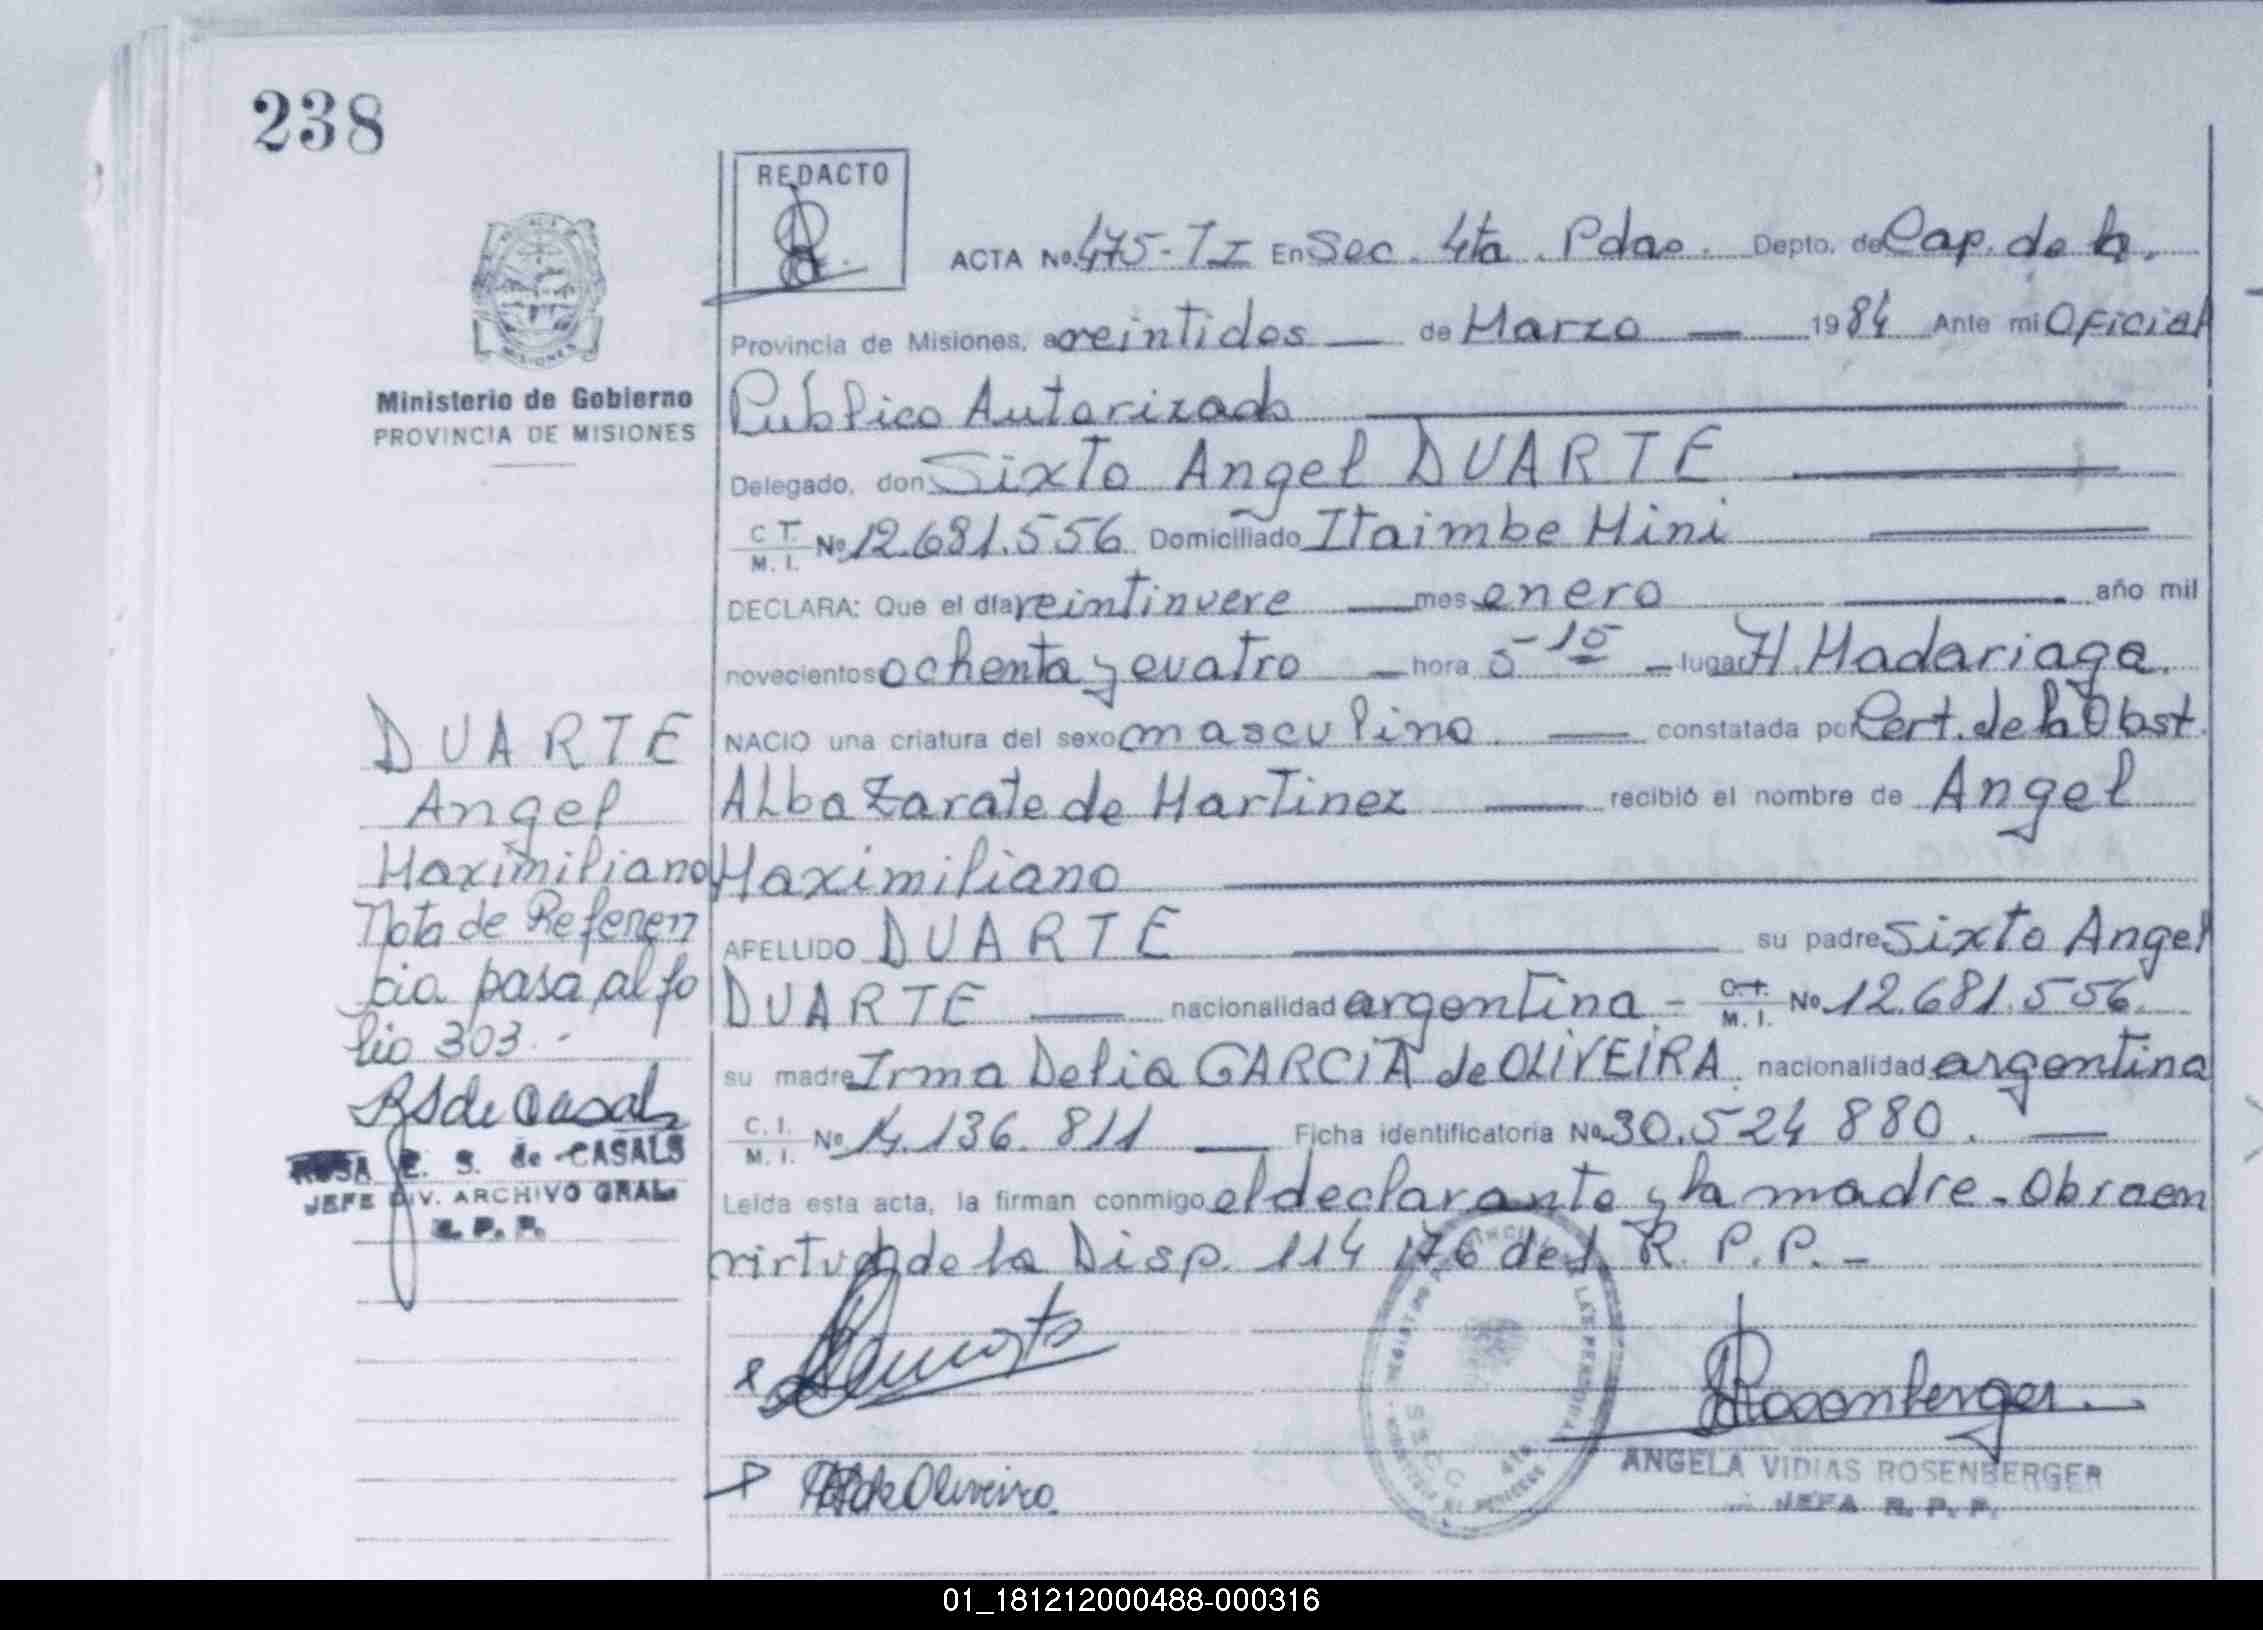 238
REDACTO
ACTA No. 475-TI En Sec. 4ta. Pdas. Depto. de Cap. de la.
Provincia de Misiones, a veintidos de Marzo 1984 Ante mi Oficial
Ministerio de Gobierno
PROVINCIA DE MISIONES
Público Autorizado
Delegado, don Sixto Angel DUARTE
C T. M. I. No 12.681.556 Domiciliado Itaimbe Mini
DECLARA: Que el día veintinueve mes enero año mil
novecientos ochenta y cuatro hora 5-15 lugar H. Madariaga.
NACIO una criatura del sexo masculino constatada por Cert. de la Obst.
Alba Zarate de Martinez recibió el nombre de Angel
Maximiliano
APELLIDO DUARTE su padre Sixto Angel
DUARTE nacionalidad argentina.- C.I. M. I. No 12.681.556.
su madre Irma Delia GARCIA de OLIVEIRA. nacionalidad argentina
C. I. M. I. No 14.136.811 Ficha identificatoria No 30.524 880.
Leída esta acta, la firman conmigo el declarante y la madre.- Obra en
virtud de la Disp. 114 176 del R. P. P.-
DUARTE
Angel
Maximiliano
Nota de Referen
cia pasa al fo
lio 303.-
RS de Casals
ROSA E. S. de CASALS
JEFE DIV. ARCHIVO GRAL.
R. P. P.
de Oliveira
Rosenberger
ANGELA VIDIAS ROSENBERGER
JEFA R. P. P.
01_181212000488-000316